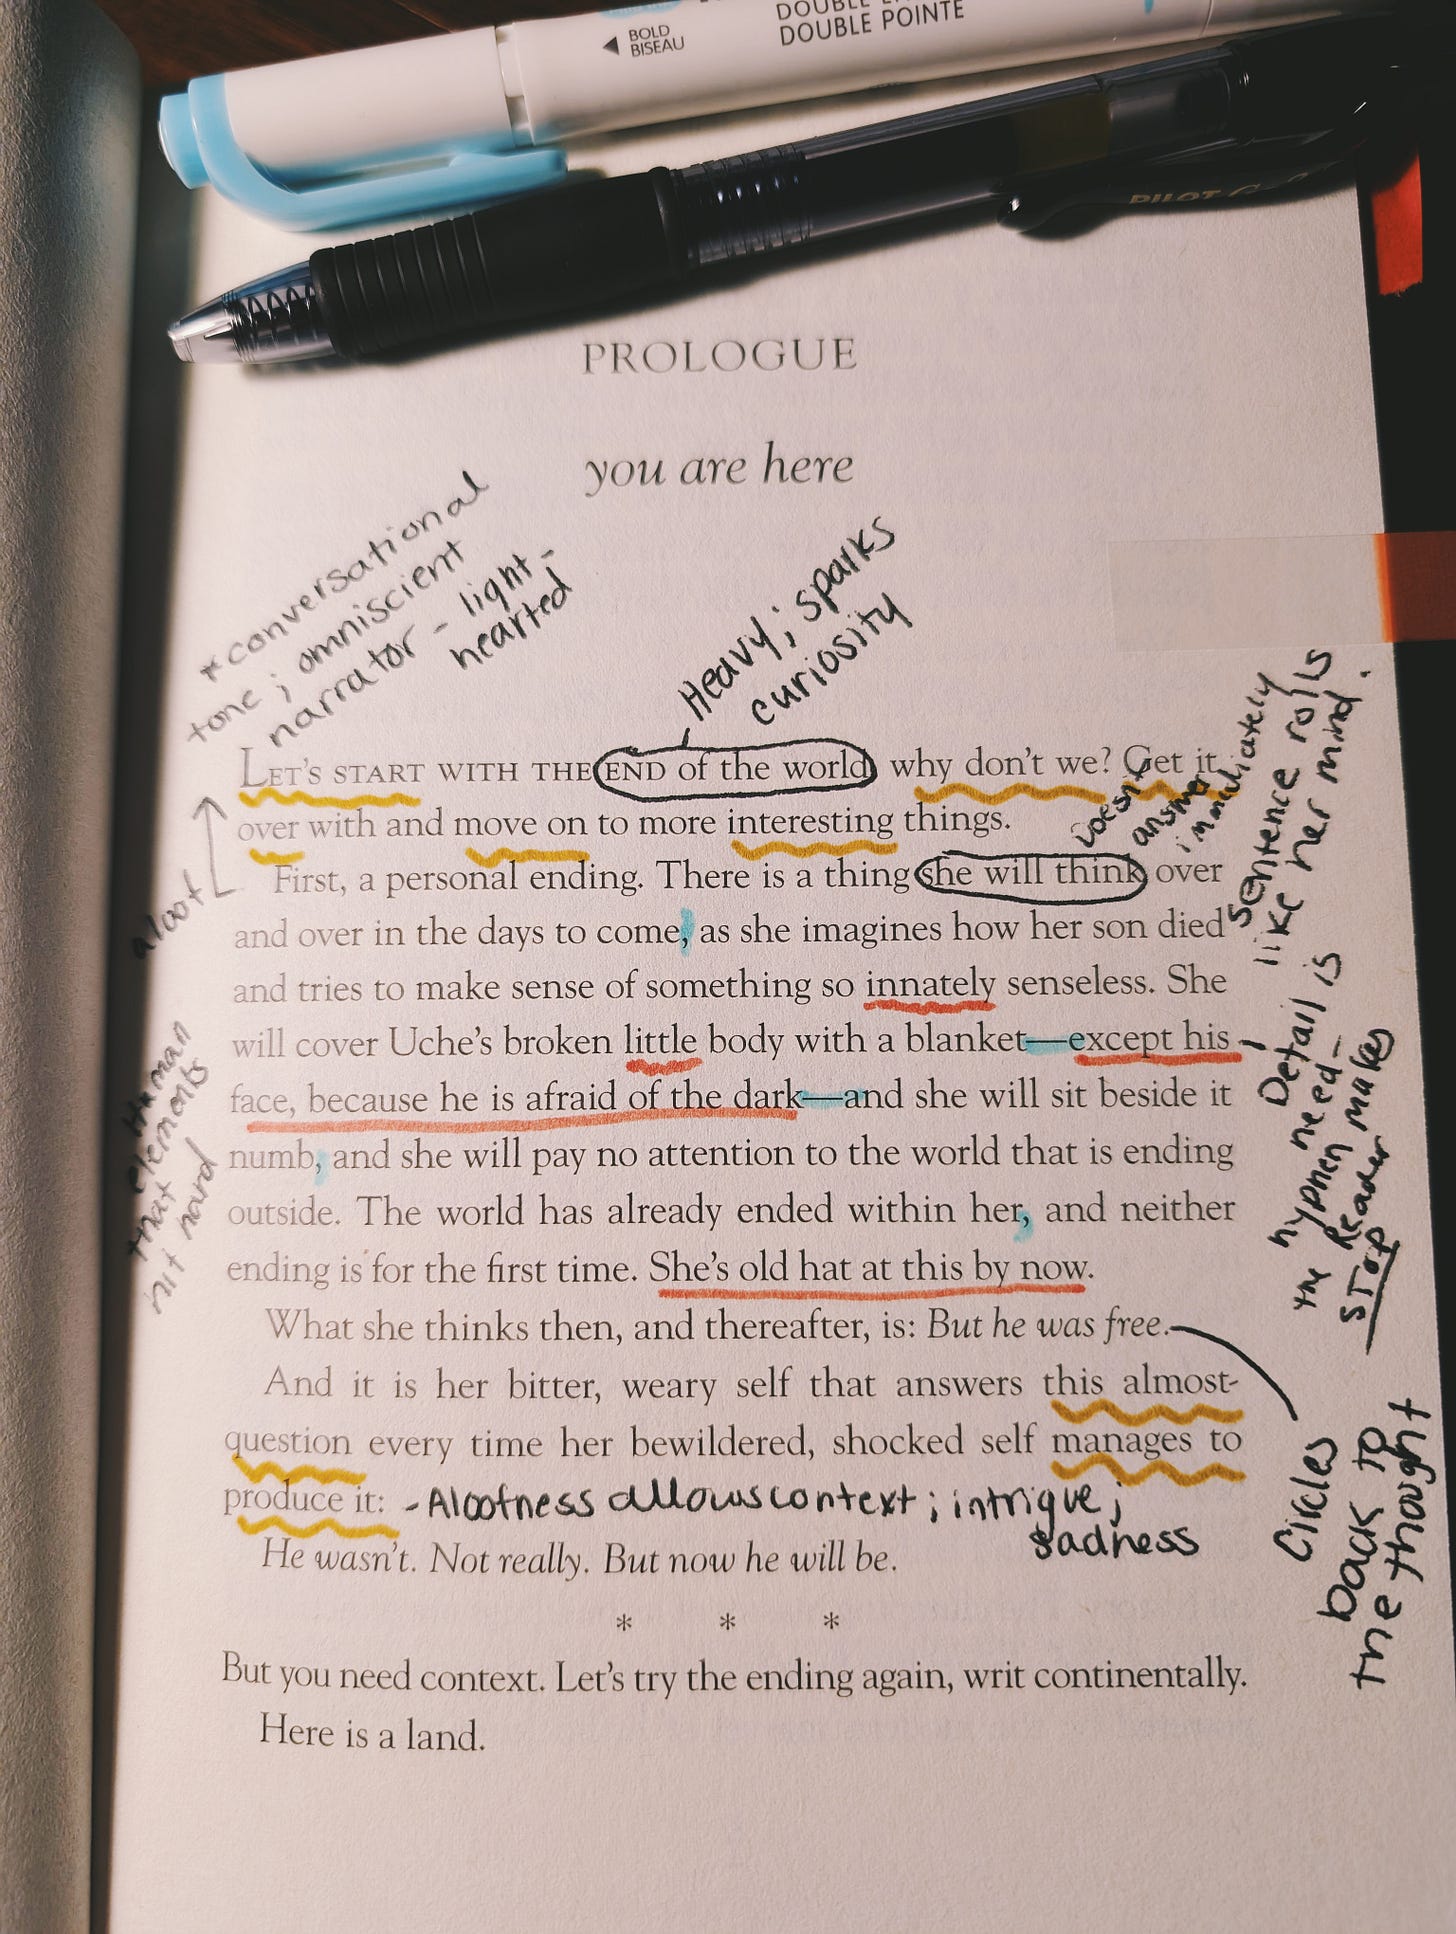 BOLD
BISEAU
DOUBLE
DOUBLE POINTE
PILOT G-2
PROLOGUE
you are here
*conversational
tone; omniscient
narrator - light-
hearted
Heavy; sparks
curiosity
LET'S START WITH THE END of the world, why don't we? Get it
over with and move on to more interesting things.
Doesn't
answer
immediately
First, a personal ending. There is a thing she will think over
and over in the days to come, as she imagines how her son died
and tries to make sense of something so innately senseless. She
will cover Uche's broken little body with a blanket—except his
face, because he is afraid of the dark—and she will sit beside it
numb, and she will pay no attention to the world that is ending
outside. The world has already ended within her, and neither
ending is for the first time. She's old hat at this by now.
What she thinks then, and thereafter, is: But he was free.
And it is her bitter, weary self that answers this almost-
question every time her bewildered, shocked self manages to
produce it:
- Alootness allows context; intrigue;
sadness
He wasn't. Not really. But now he will be.
* * *
But you need context. Let's try the ending again, writ continentally.
Here is a land.
aloof
Human
elements
that
hit hard
sentence rolls
like her mind.
Detail is
need-
hyphen makes
the Reader
STOP
Circles
back to
the thought